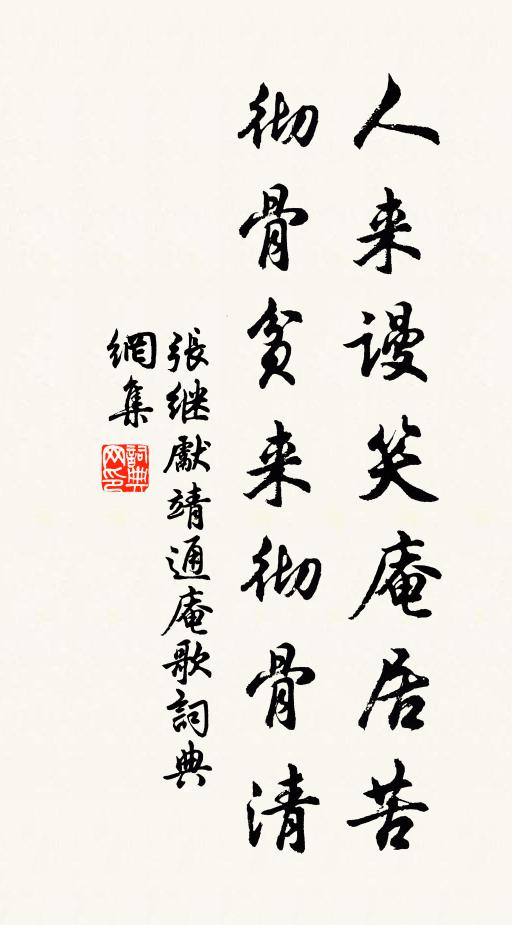 人来谩笑庵居苦
彻骨贫来彻骨清
張继獻靖通庵歌詞典
網集
詞典
网印